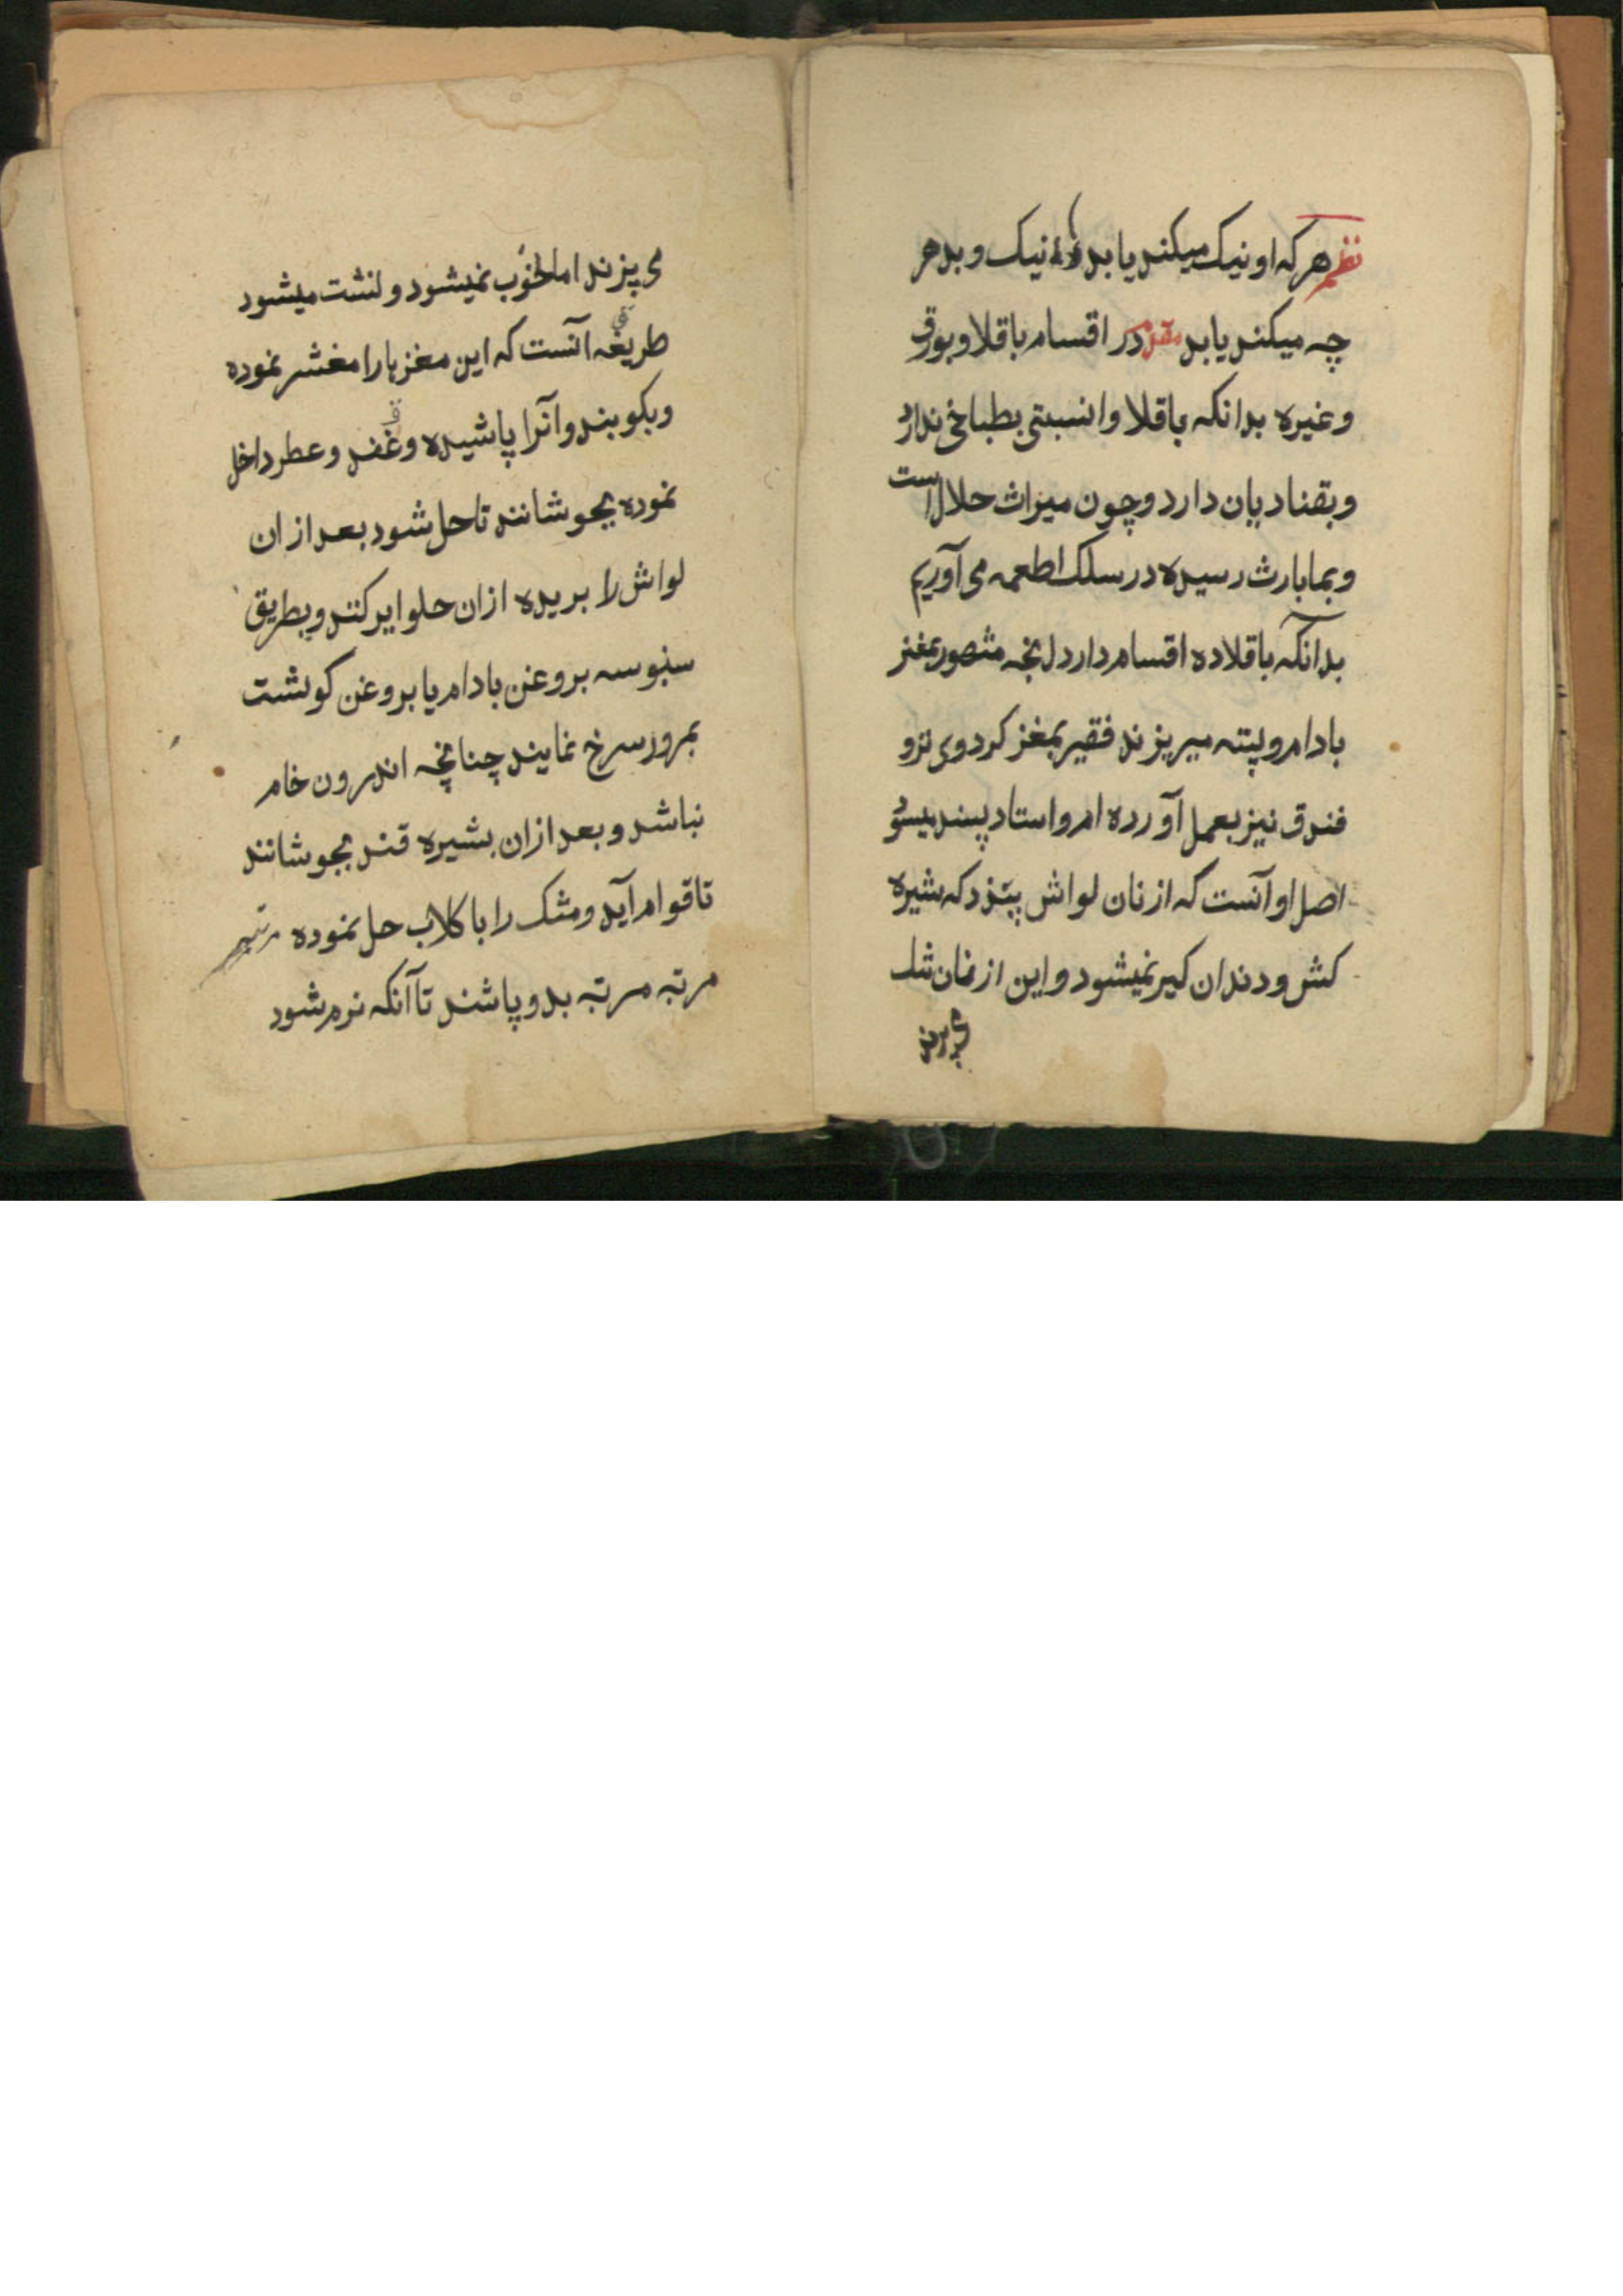 نظم هر که او نیک میکند یابد نیک و بد هر
چه میکند یابد در اقسام باقلاو بورق
وغیره بدانکه باقلا وا نسبتی بطباخی ندارد
وبقناد بان دارد وچون میراث حلال است
وبما بارث رسیده در سلک اطعمه می آوریم
بدانکه باقلاده اقسام دارد انچه مشهور بمغز
بادام و پسته میریزند فقیر بمغز کردوی ترو
فندق نیز بعمل آورده ام و استاد پسند میشود
اصل او آنست که از نان لواش پتزد که شیره
کش و دندان کیر نمیشود و این از نان تنک
می پزند
می پزند اما خوب نمیشود و لشت میشود
طریقه آنست که این مغز ها را مغشر نموده
وبکوبند وآنرا پاشیده وقند وعطر داخل
نموده بجوشانند تا حل شود بعد از ان
لواش را بریده ازان حلوا پر کنند و بطریق
سنبوسه بروغن بادام یا بروغن کوشت
بمرور سرخ نمایند چنانچه اندرون خام
نباشد و بعد ازان بشیره قند بجوشانند
تا قوام آید و مشک را با کلاب حل نموده
مرتبه مرتبه بدو پاشند تا آنکه نرم شود